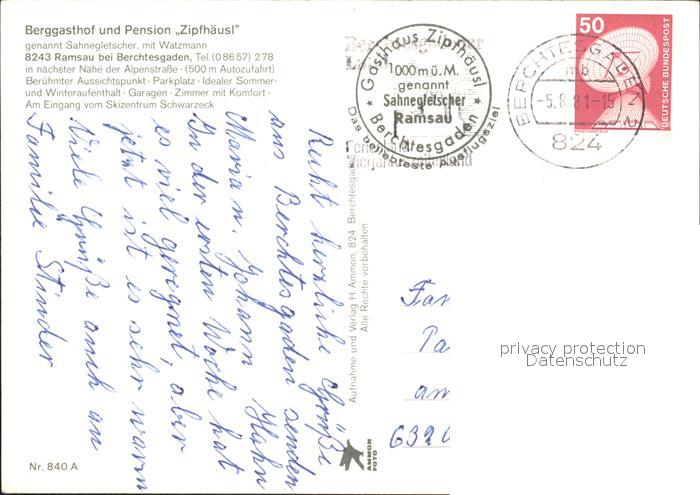 Berggasthof und Pension „Zipfhäusl"
genannt Sahnegletscher, mit Watzmann
8243 Ramsau bei Berchtesgaden, Tel. (08657) 278
in nächster Nähe der Alpenstraße - (500 m Autozufahrt)
Berühmter Aussichtspunkt - Parkplatz - Idealer Sommer-
und Winteraufenthalt - Garagen - Zimmer mit Komfort -
Am Eingang vom Skizentrum Schwarzeck
Recht herzliche Grüße
aus Berchtesgaden senden
Maria u. Johann Hahn
In der ersten Woche hat
es viel geregnet, aber
jetzt ist es sehr warm
Viele Grüße auch an
Familie Stinder
Nr. 840 A
Aufnahme und Verlag H. Ammon, 824 Berchtesgaden
Alle Rechte vorbehalten
AMMON
FOTO
Gasthaus Zipfhäusl
1000 m ü. M.
genannt
Sahnegletscher
Ramsau
Berchtesgaden
Das beliebteste Ausflugsziel
BERCHTESGADEN 2
mb
-5.8.81-15
824
50
DEUTSCHE BUNDESPOST
Fam
Ta
am
6320
privacy protection
Datenschutz